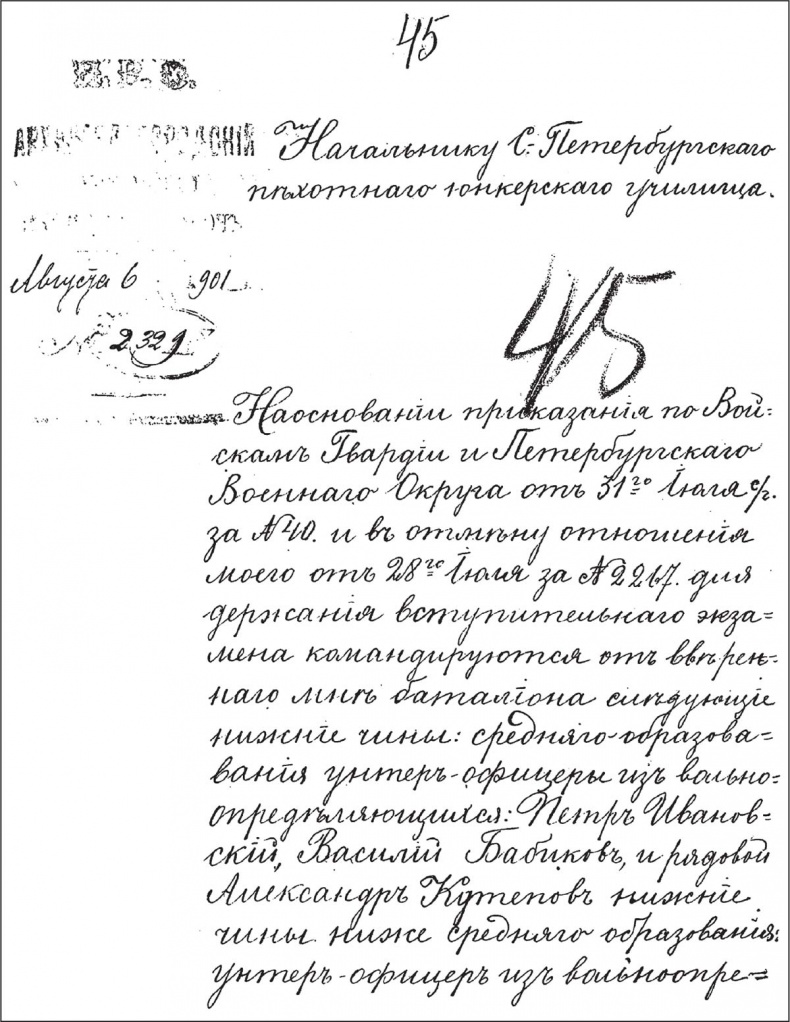 45
И. В. О.
АРХАНГЕЛОГОРОДСКІЙ
Начальнику С.-Петербургскаго
пѣхотнаго юнкерскаго училища.
Августа 6 1901
№ 2329
45
На основаніи приказанія по Вой=
скамъ Гвардіи и Петербургскаго
Военнаго Округа отъ 31го Іюля с/г.
за №40. и въ отмѣну отношенія
моего отъ 28го Іюля за №2217. для
держанія вступительнаго экза=
мена командируются отъ ввѣрен=
наго мнѣ баталіона слѣдующіе
нижніе чины: средняго образова=
ванія унтеръ-офицеры изъ вольно=
опредѣляющихся: Петръ Иванов=
скій, Василій Бабиковъ, и рядовой
Александръ Кутеповъ нижніе
чины ниже средняго образованія:
унтеръ-офицеръ изъ вольноопре=